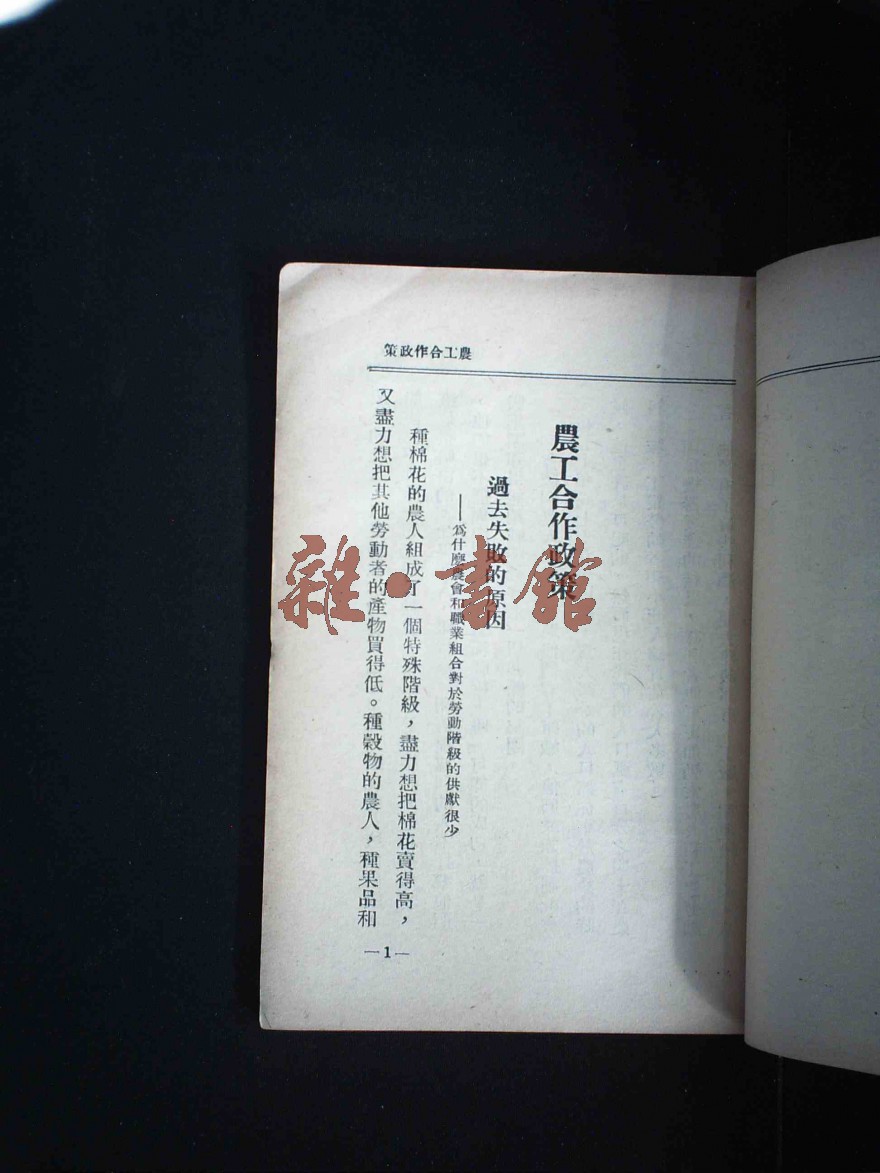 策政作合工農
農工合作政策
過去失敗的原因
——爲什麼農會和職業組合對於勞動階級的供獻很少
種棉花的農人組成了一個特殊階級，盡力想把棉花賣得高，
又盡力想把其他勞動者的產物買得低。種穀物的農人，種果品和
—1—
雜·書館